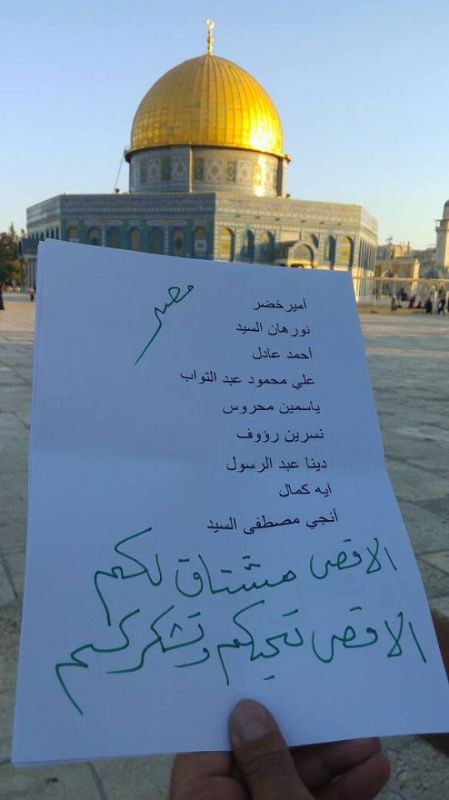 مصر
أميرخضر
نورهان السيد
أحمد عادل
علي محمود عبد التواب
ياسمين محروس
نسرين رؤوف
دينا عبد الرسول
آيه كمال
أنجي مصطفى السيد
الاقصى مشتاق لكم
الاقصى تحيكم وتشكركم